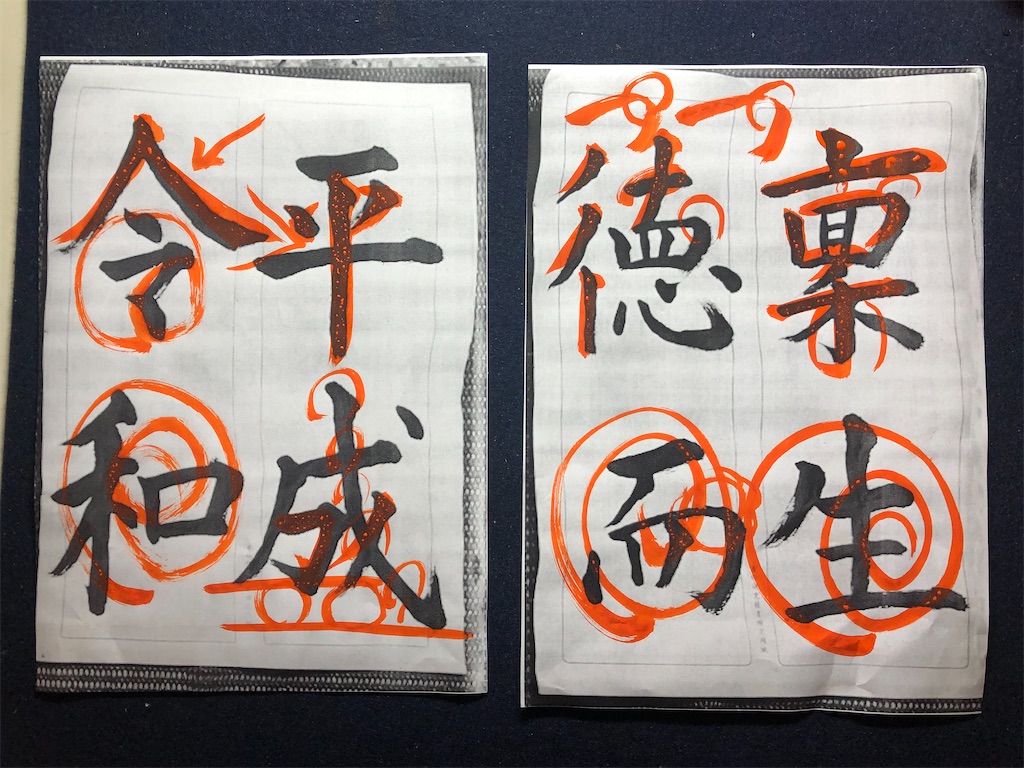 平成
令和
稟生
而徳